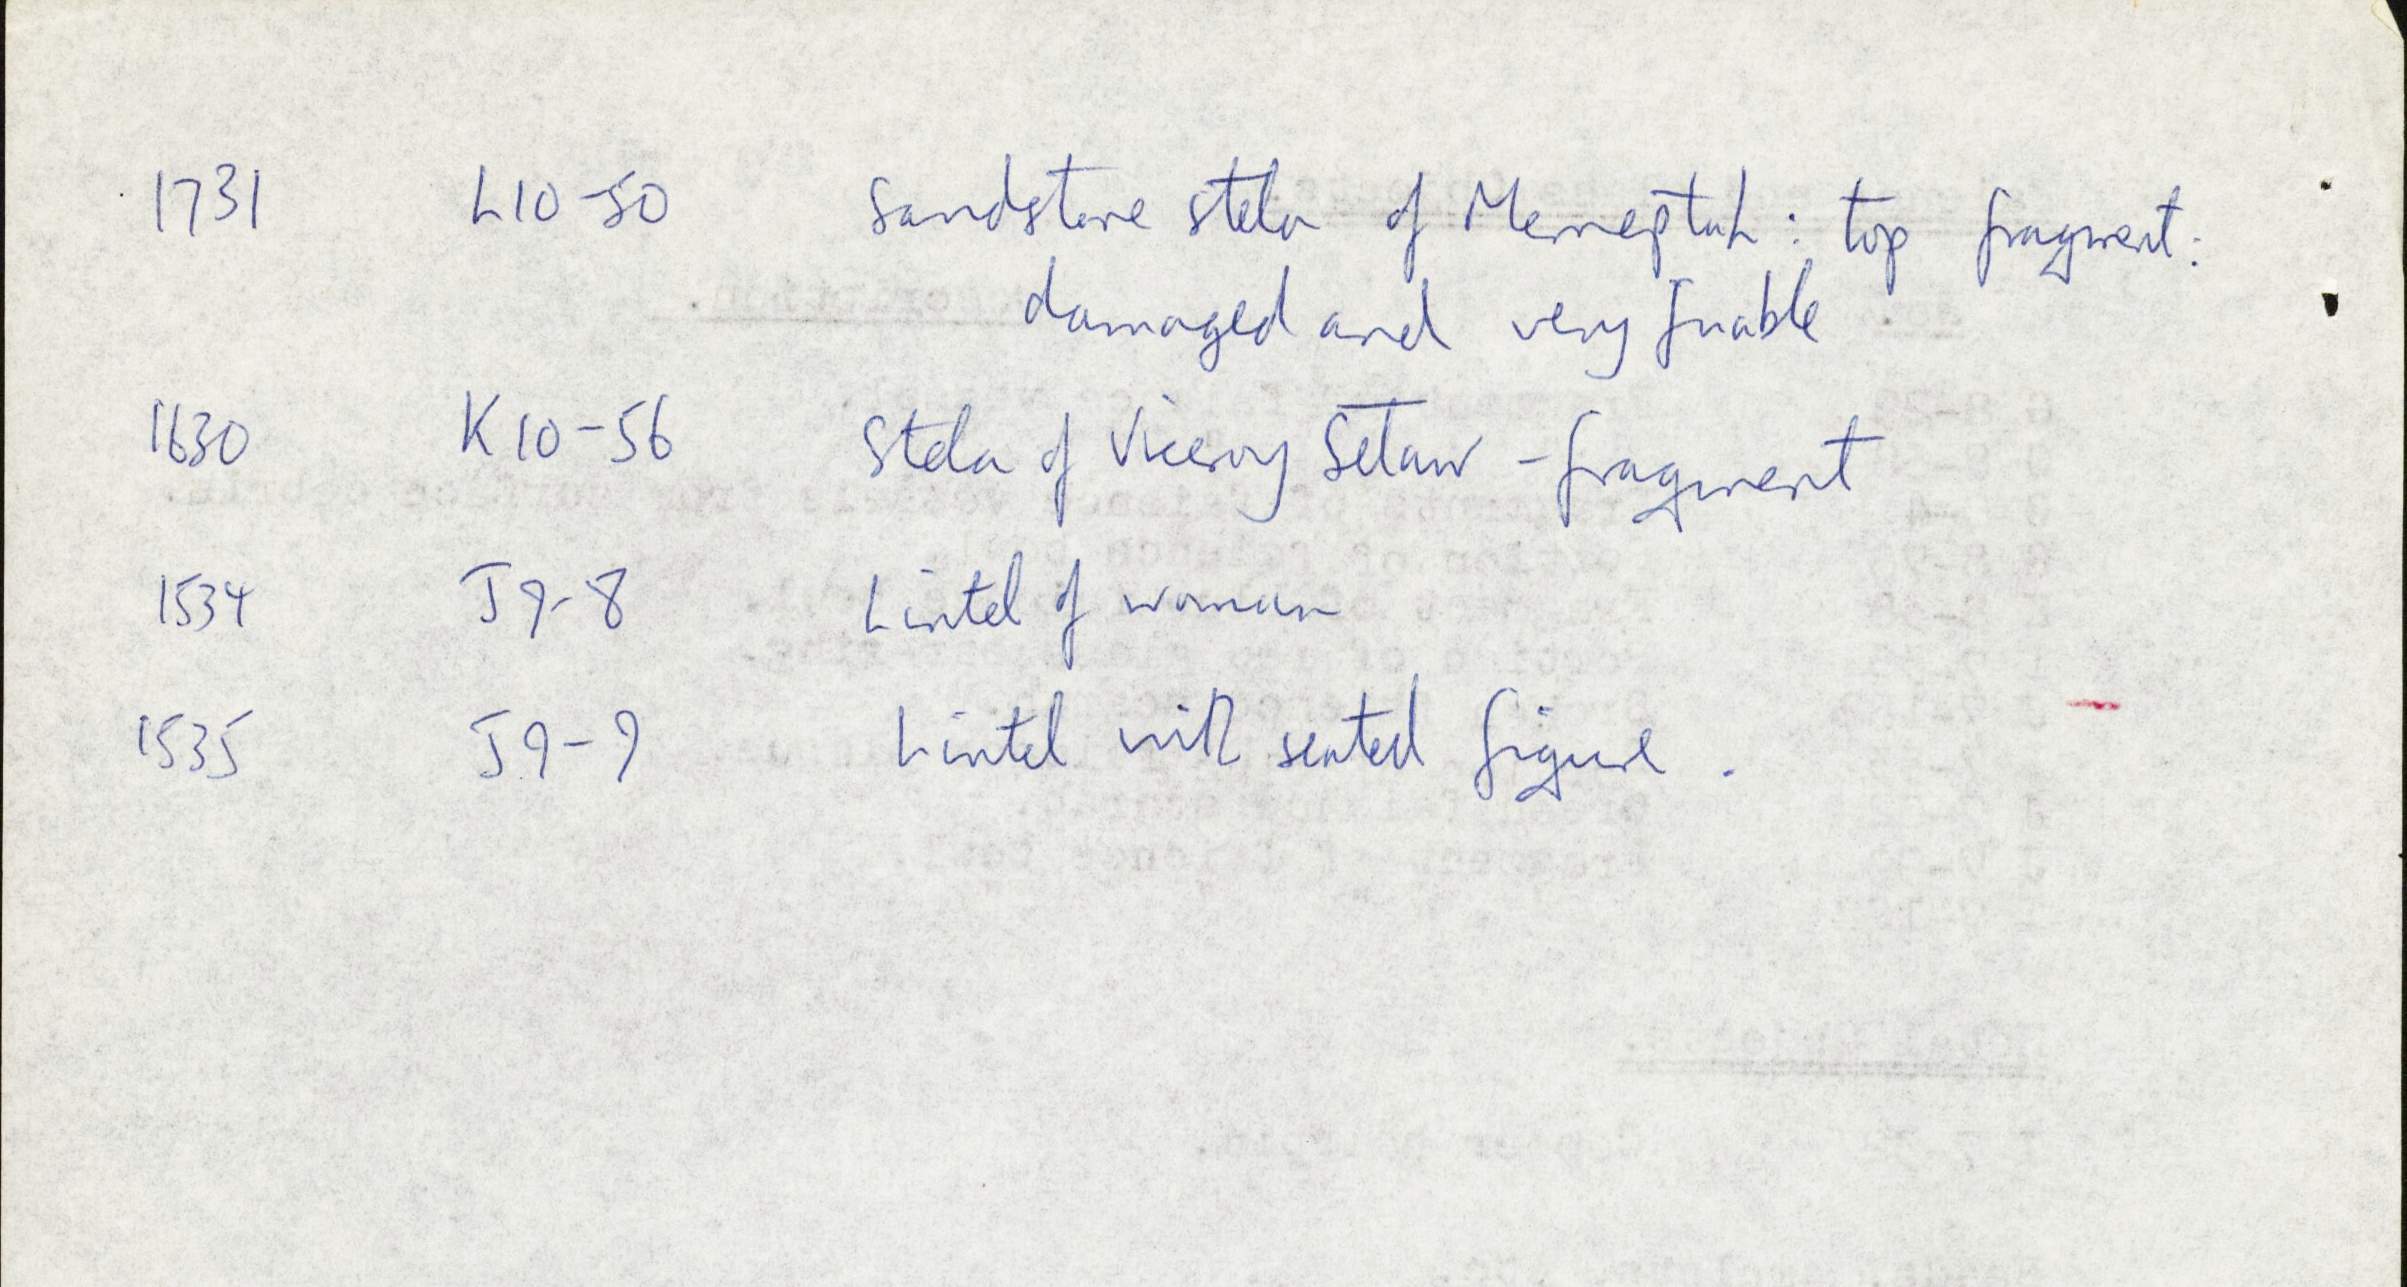 1731 L10-50 Sandstone stela of Merneptah: top fragment:
damaged and very friable
1630 K10-56 Stela of Viceroy Setaw - fragment
1534 J9-8 Lintel of woman
1535 J9-9 Lintel with seated figure.